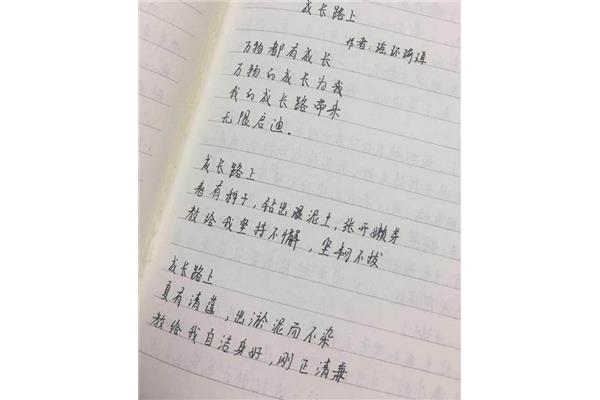 成长路上
作者:
万物都有成长
万物的成长为我
我的成长路带来
无限启迪。
成长路上
春有种子,钻出泥土,张开嫩芽
教给我坚持不懈,坚韧不拔
成长路上
夏有清莲,出淤泥而不染
教给我自洁身好,刚正清廉